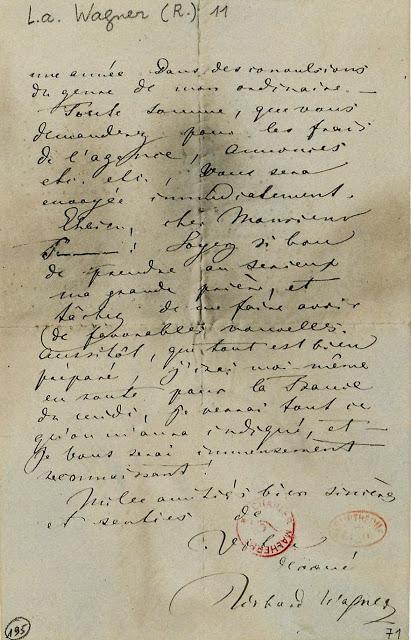 L.a. Wagner (R.) 11
une année dans des convulsions
du genre de mon ordinaire. —
Toute somme, que vous
demanderez pour les frais
de l'agence, annonces
etc. etc., vous sera
envoyée immédiatement.
Eh bien, cher Monsieur
F——! Soyez si bon
de prendre au serieux
ma grande prière, et
tâchez de me faire avoir
de favorables nouvelles.
Aussitôt, que tout est bien
préparé, j'irai moi même
en route pour la France
du midi, je verrai tout ce
qu'on m'aura indiqué, et —
je vous serai immensement
reconnaissant!
Mille amitiés bien sincères
et senties de
Votre
dévoué
Richard Wagner
195
71